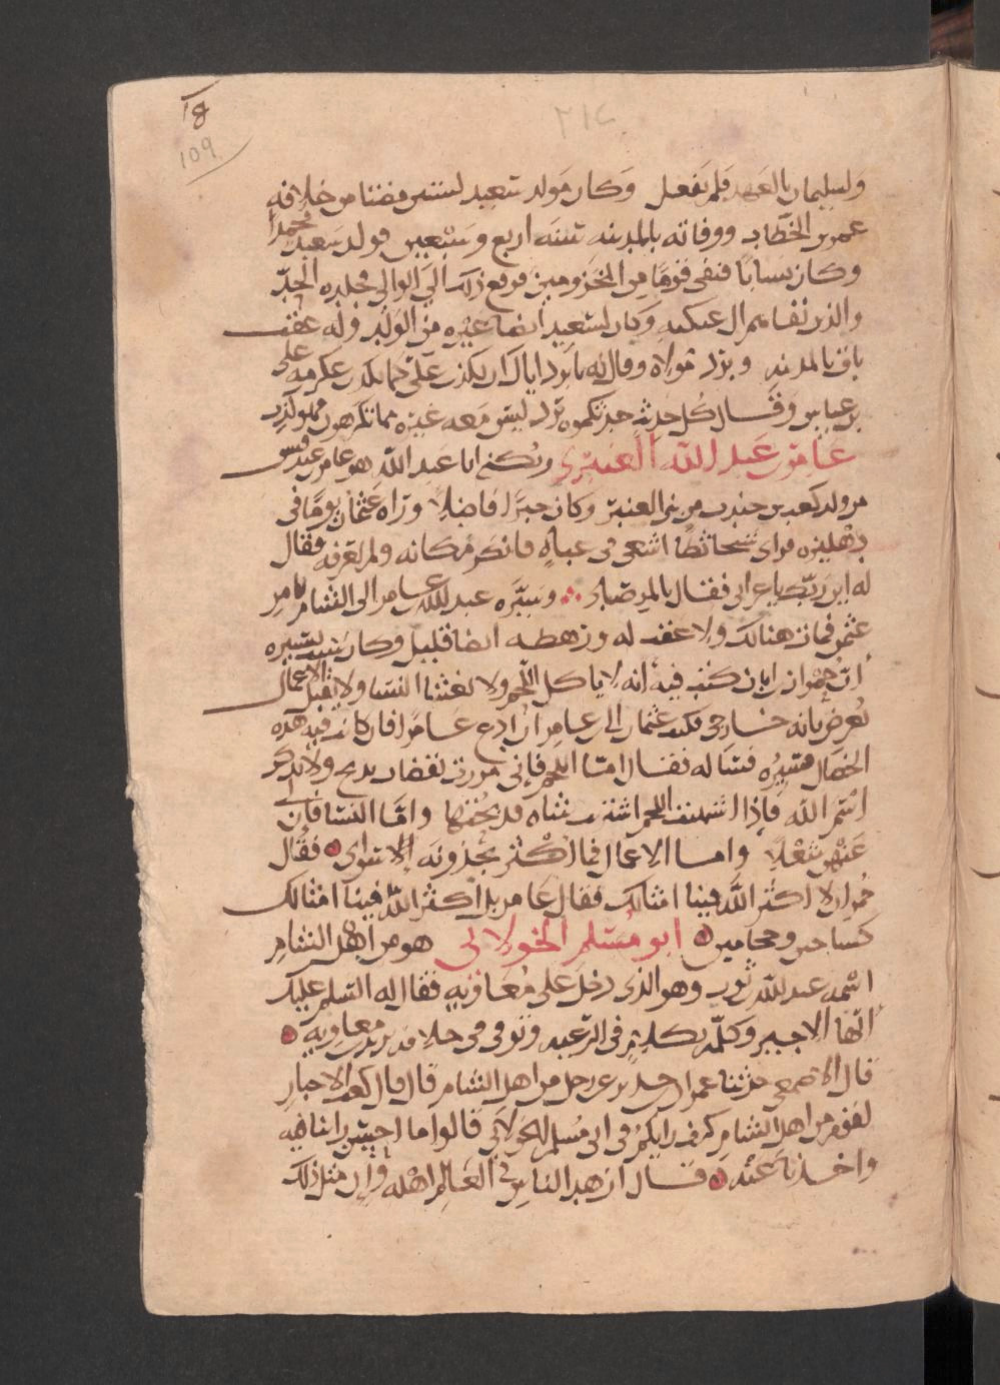 18
109
٢١٤
ولسليمان بالعهد فلم يفعل وكان مولد سعيد لسنتين مضتا من خلافه
عمر بن الخطاب ووفاته بالمدينه سنه اربع وتسعين فولد سعيد محمدا
وكان نسابا فنفى قوما من المخزوميين فرفع ذلك الى الوالى فجلده الحد
والذين نفاهم ال عنكثه وكان لسعيد ايضا غيره من الولد وله عقب
باق بالمدينه وبرد مولاه وقال له يا برد اياك ان تكذب على كما يكذب عكرمه على
بن عباس وقال كل حديث حدثكموه برد ليس معه غيره مما تكرهون فهو كذب
عامر بن عبد الله العنبرى ويكنى ابا عبد الله هو عامر بن عبد قيس
من ولد كعب بن جندب من بنى العنبر وكان خيرا فاضلا وراه عثمان يوما فى
دهليزه فراى شيخا ثطا اشغى فى عباه فانكر مكانه ولم يعرفه فقال
له اين ربك يا عرابى فقال بالمرصاد وسيره عبد الله بن عامر الى الشام بامر
عثمن فمات هنالك ولا عقب له ورهطه ايضا قليل وكان سبب تسييره
ان حمران بن ابان كتب فيه انه لا ياكل اللحم ولا يغشى النسا ولا يقبل الاعمال
يعرض بانه خارجى فكتب عثمان الى بن عامر ان ادع عامرا فان كانت فيه هذه
الخصال فسيره فساله فقال اما اللحم فانى مررت بقصاب يذبح ولا يذكر
اسم الله فاذا اشتهيت اللحم اشتريت شاه فذبحتها واما النسا فان لى
عنهن شغلا واما الاعمال فما اكثر من تجدونه لها سواى فقال
حمران لا اكثر الله فينا امثالك فقال عامر بل اكثر الله فينا امثالك
كساحين وحجامين ابو مسلم الخولانى هو من اهل الشام
اسمه عبد الله بن ثوب وهو الذى دخل على معاويه فقال له السلم عليك
ايها الاجير وكلمه بكلام فى الرعيه وتوفى فى خلافه يزيد بن معاويه
قال الاصمعى حدثنا عمران بن حدير عن رجل من اهل الشام قال قال كعب الاحبار
لقوم من اهل الشام كيف رايكم فى ابى مسلم الخولانى قالوا ما احسن راينا فيه
واخذنا عنه قال ازهد الناس فى العالم اهله وان مثل ذلك